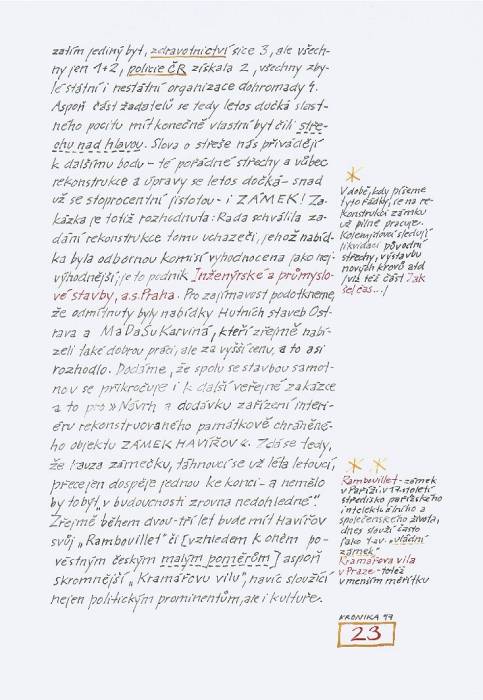 zatím jediný byt, zdravotnictví sice 3, ale všech-
ny jen 1+2, policie ČR získala 2, všechny zby-
lé státní i nestátní organizace dohromady 4.
Aspoň část žadatelů se tedy letos dočká slast-
ného pocitu mít konečně vlastní byt čili stře-
chu nad hlavou. Slova o střeše nás přivádějí
k dalšímu bodu - té pořádné střechy a vůbec
rekonstrukce a úpravy se letos dočká - snad
už se stoprocentní jistotou - i ZÁMEK! Za-
kázka je totiž rozhodnuta: Rada schválila za-
dání rekonstrukce tomu uchazeči, jehož nabíd-
ka byla odbornou komisí vyhodnocena jako nej-
výhodnější; je to podnik Inženýrské a průmyslo-
vé stavby, a.s. Praha. Pro zajímavost podotkneme,
že odmítnuty byly nabídky Hutních staveb Ost-
rava a MaDaSu Karviná, kteří zřejmě nabí-
zeli také dobrou práci, ale za vyšší cenu, a to asi
rozhodlo. Dodáme, že spolu se stavbou samot-
nou se přikročuje i k další veřejné zakázce
a to pro »Návrh a dodávku zařízení interi-
éru rekonstruovaného památkově chráněné-
ho objektu ZÁMEK HAVÍŘOV«. Zdá se tedy,
že kauza zámečku, táhnoucí se už léta letoucí,
přece jen dospěje jednou ke konci - a nemělo
by to být „v budoucnosti zrovna nedohledné“.
Zřejmě během dvou - tří let bude mít Havířov
svůj „Rambouillet“ či [vzhledem k oněm po-
věstným českým malým poměrům] aspoň
skromnější „Kramářovu vilu“, navíc sloužící
nejen politickým prominentům, ale i kultuře.
*
V době, kdy píšeme
tyto řádky, se na re-
konstrukci zámku
už pilně pracuje.
Kolemjdoucí sledují
likvidaci původní
střechy, výstavbu
nových krovů atd
/viz též část Jak
šel čas.../
* *
Rambouillet - zámek
v Paříži v 17. století
středisko pařížského
intelektuálního a
společenského života,
dnes slouží často
jako t.zv. „vládní
zámek“
Kramářova vila
v Praze - totéž
v menším měřítku
KRONIKA 97
23